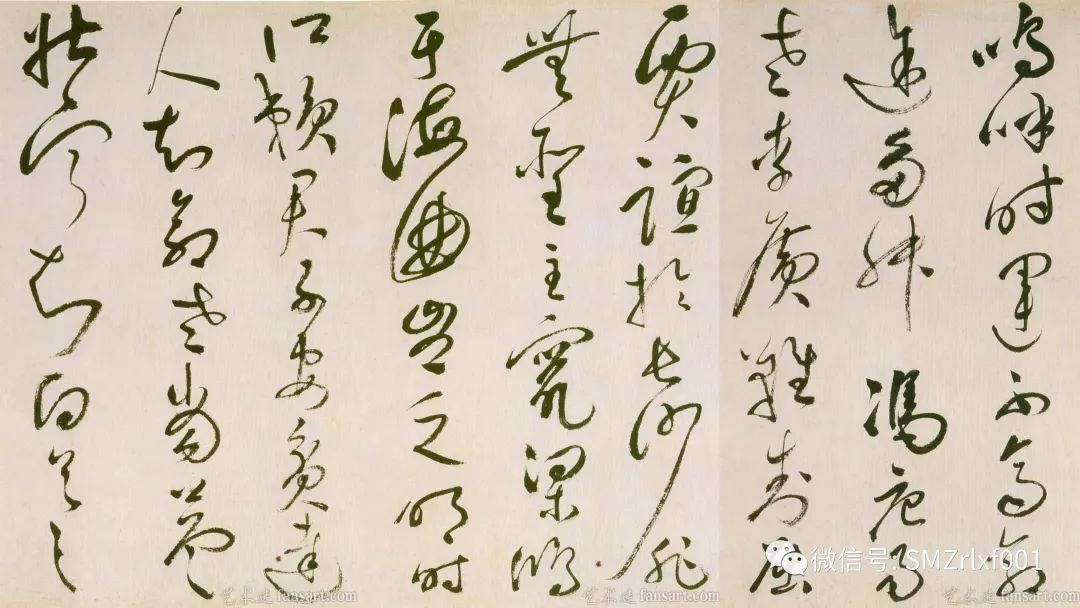 嗚呼時運不齊命
途多舛馮唐易
老李廣難封屈
賈誼於長沙非
無聖主竄梁鴻
于海曲豈乏明時
所賴君子安貧達
人知命老當益
壯寧知白首之
微信号: SMZrlxf001
fansart.com
fansart.com
fansart.com